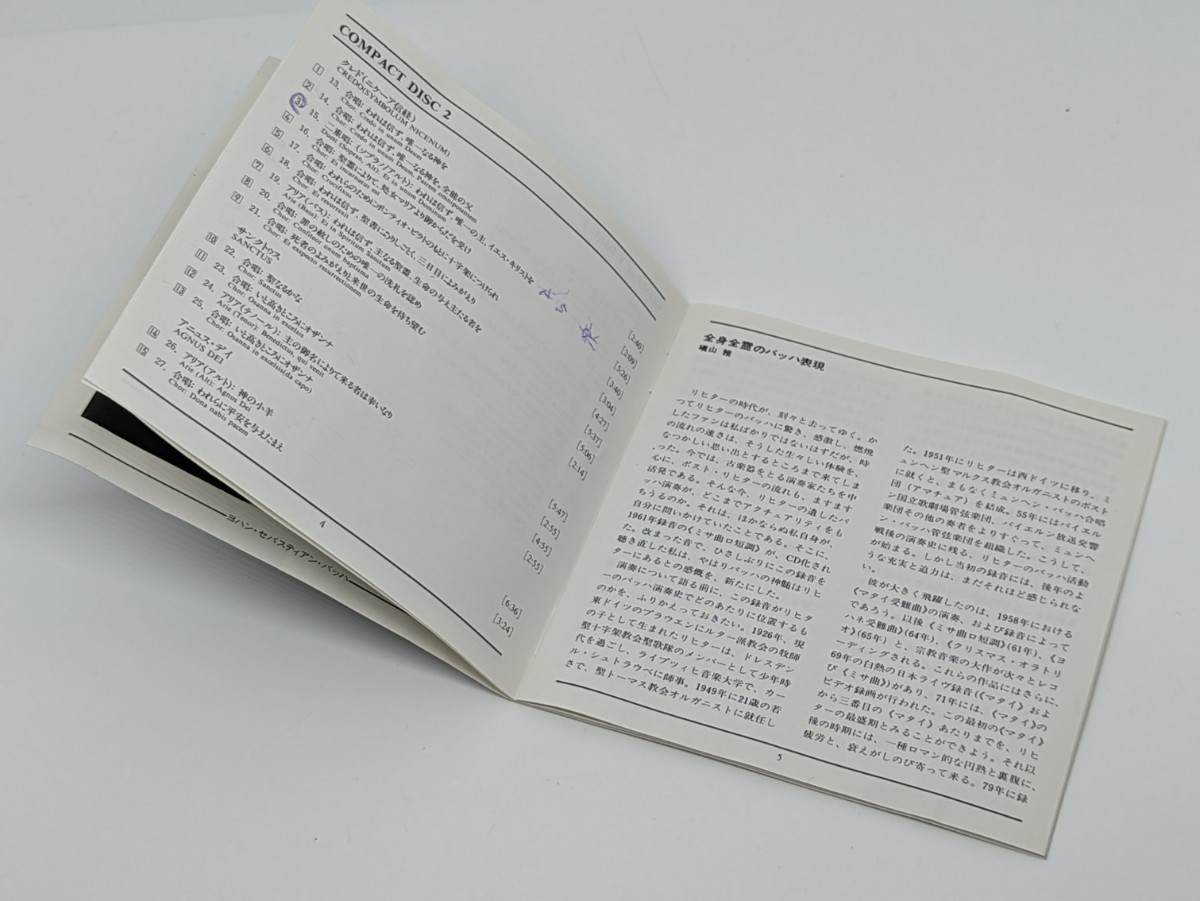 COMPACT DISC 2
クレド(ニケーア信経)
CREDO(SYMBOLUM NICENUM)
1 13. 合唱: われは信ず、唯一なる神を [2:40]
Chor: Credo in unum Deum
2 14. 合唱: われは信ず、唯一なる神を、全能の父 [2:09]
Chor: Credo in unum Deum, Patrem omnipotentem
3 15. 二重唱: (ソプラノ/アルト): われは信ず、唯一の主、イエス・キリストを [5:26]
Duett (Sopran, Alt): Et in unum Dominum
4 16. 合唱: 聖霊によりて、処女マリアより御からだを受け [3:40]
Chor: Et incarnatus est
5 17. 合唱: われらのためにポンティオ・ピラトのもとに十字架につけられ [3:04]
Chor: Crucifixus
6 18. 合唱: われは信ず、聖書にありしごとく、三日目によみがえり [4:27]
Chor: Et resurrexit
7 19. アリア(バス): われは信ず、主なる聖霊、生命の与え主たる者を [5:37]
Arie (Bass): Et in Spiritum Sanctum
8 20. 合唱: 罪の赦しのための唯一の洗礼を認め [5:06]
Chor: Confiteor unum baptisma
9 21. 合唱: 死者のよみがえりと来世の生命を待ち望む [2:14]
Chor: Et exspecto resurrectionem
サンクトゥス
SANCTUS
10 22. 合唱: 聖なるかな [5:47]
Chor: Sanctus
11 23. 合唱: いと高きところにオザンナ [2:55]
Chor: Osanna in excelsis
12 24. アリア(テノール): 主の御名によりて来る者は幸いなり [4:55]
Arie (Tenor): Benedictus, qui venit
13 25. 合唱: いと高きところにオザンナ [2:55]
Chor: Osanna in excelsis(da capo)
アニュス・デイ
AGNUS DEI
14 26. アリア(アルト): 神の小羊 [6:36]
Arie (Alt): Agnus Dei
15 27. 合唱: われらに平安を与えたまえ [3:24]
Chor: Dona nobis pacem
4
ヨハン・セバスティアン・バッハ
全身全霊のバッハ表現
礒山 雅
リヒターの時代が、刻々と去ってゆく。か
ってリヒターのバッハに驚き、感激し、燃焼
したファンは私ばかりではないはずだが、時
の流れの速さは、そうした生々しい体験を、
なつかしい思い出とするところまで来てしま
った。今では、古楽器をとる演奏家たちを中
心に、ポスト・リヒターの流れも、ますます
活発である。そんな今、リヒターの遺したバ
ッハ演奏が、どこまでアクチュアリティをも
ちうるのか。それは、ほかならぬ私自身が、
自分に問いかけていたことである。そこに、
1961年録音の《ミサ曲ロ短調》が、CD化され
た。改まった音で、ひさしぶりにこの録音を
聴き直した私は、やはりバッハの神髄はリヒ
ターにあるとの感慨を、新たにした。
演奏について語る前に、この録音がリヒタ
ーのバッハ演奏史でどのあたりに位置するも
のかを、ふりかえっておきたい。1926年、現
東ドイツのプラウエンにルター派教会の牧師
の子として生まれたリヒターは、ドレスデン
聖十字架教会聖歌隊のメンバーとして少年時
代を過ごし、ライプツィヒ音楽大学で、カー
ル・シュトラウベに師事。1949年に21歳の若
さで、聖トーマス教会オルガニストに就任し
た。1951年にリヒターは西ドイツに移り、ミ
ュンヘン聖マルクス教会オルガニストのポスト
に就くと、まもなくミュンヘン・バッハ合唱
団(アマチュア)を結成。55年にはバイエル
ン国立歌劇場管弦楽団、バイエルン放送交響
楽団その他の奏者をよりすぐって、ミュンヘ
ン・バッハ管弦楽団を組織した。こうして、
戦後の演奏史に残る、リヒターのバッハ活動
が始まる。しかし当初の録音には、後年のよ
うな充実と迫力は、まだそれほど感じられな
い。
彼が大きく飛躍したのは、1958年における
《マタイ受難曲》の演奏、および録音によって
であろう。以後《ミサ曲ロ短調》(61年)、《ヨ
ハネ受難曲》(64年)、《クリスマス・オラトリ
オ》(65年)と、宗教音楽の大作が次々とレコ
ーディングされる。これらの作品にはさらに、
69年の白熱の日本ライヴ録音(《マタイ》およ
び《ミサ曲》)があり、71年には、《マタイ》の
ビデオ録画が行われた。この最初の《マタイ》
から三番目の《マタイ》あたりまでを、リヒ
ターの最盛期とみることができよう。それ以
後の時期には、一種ロマン的な円熟と裏腹に、
疲労と、衰えがしのび寄って来る。79年に録
5